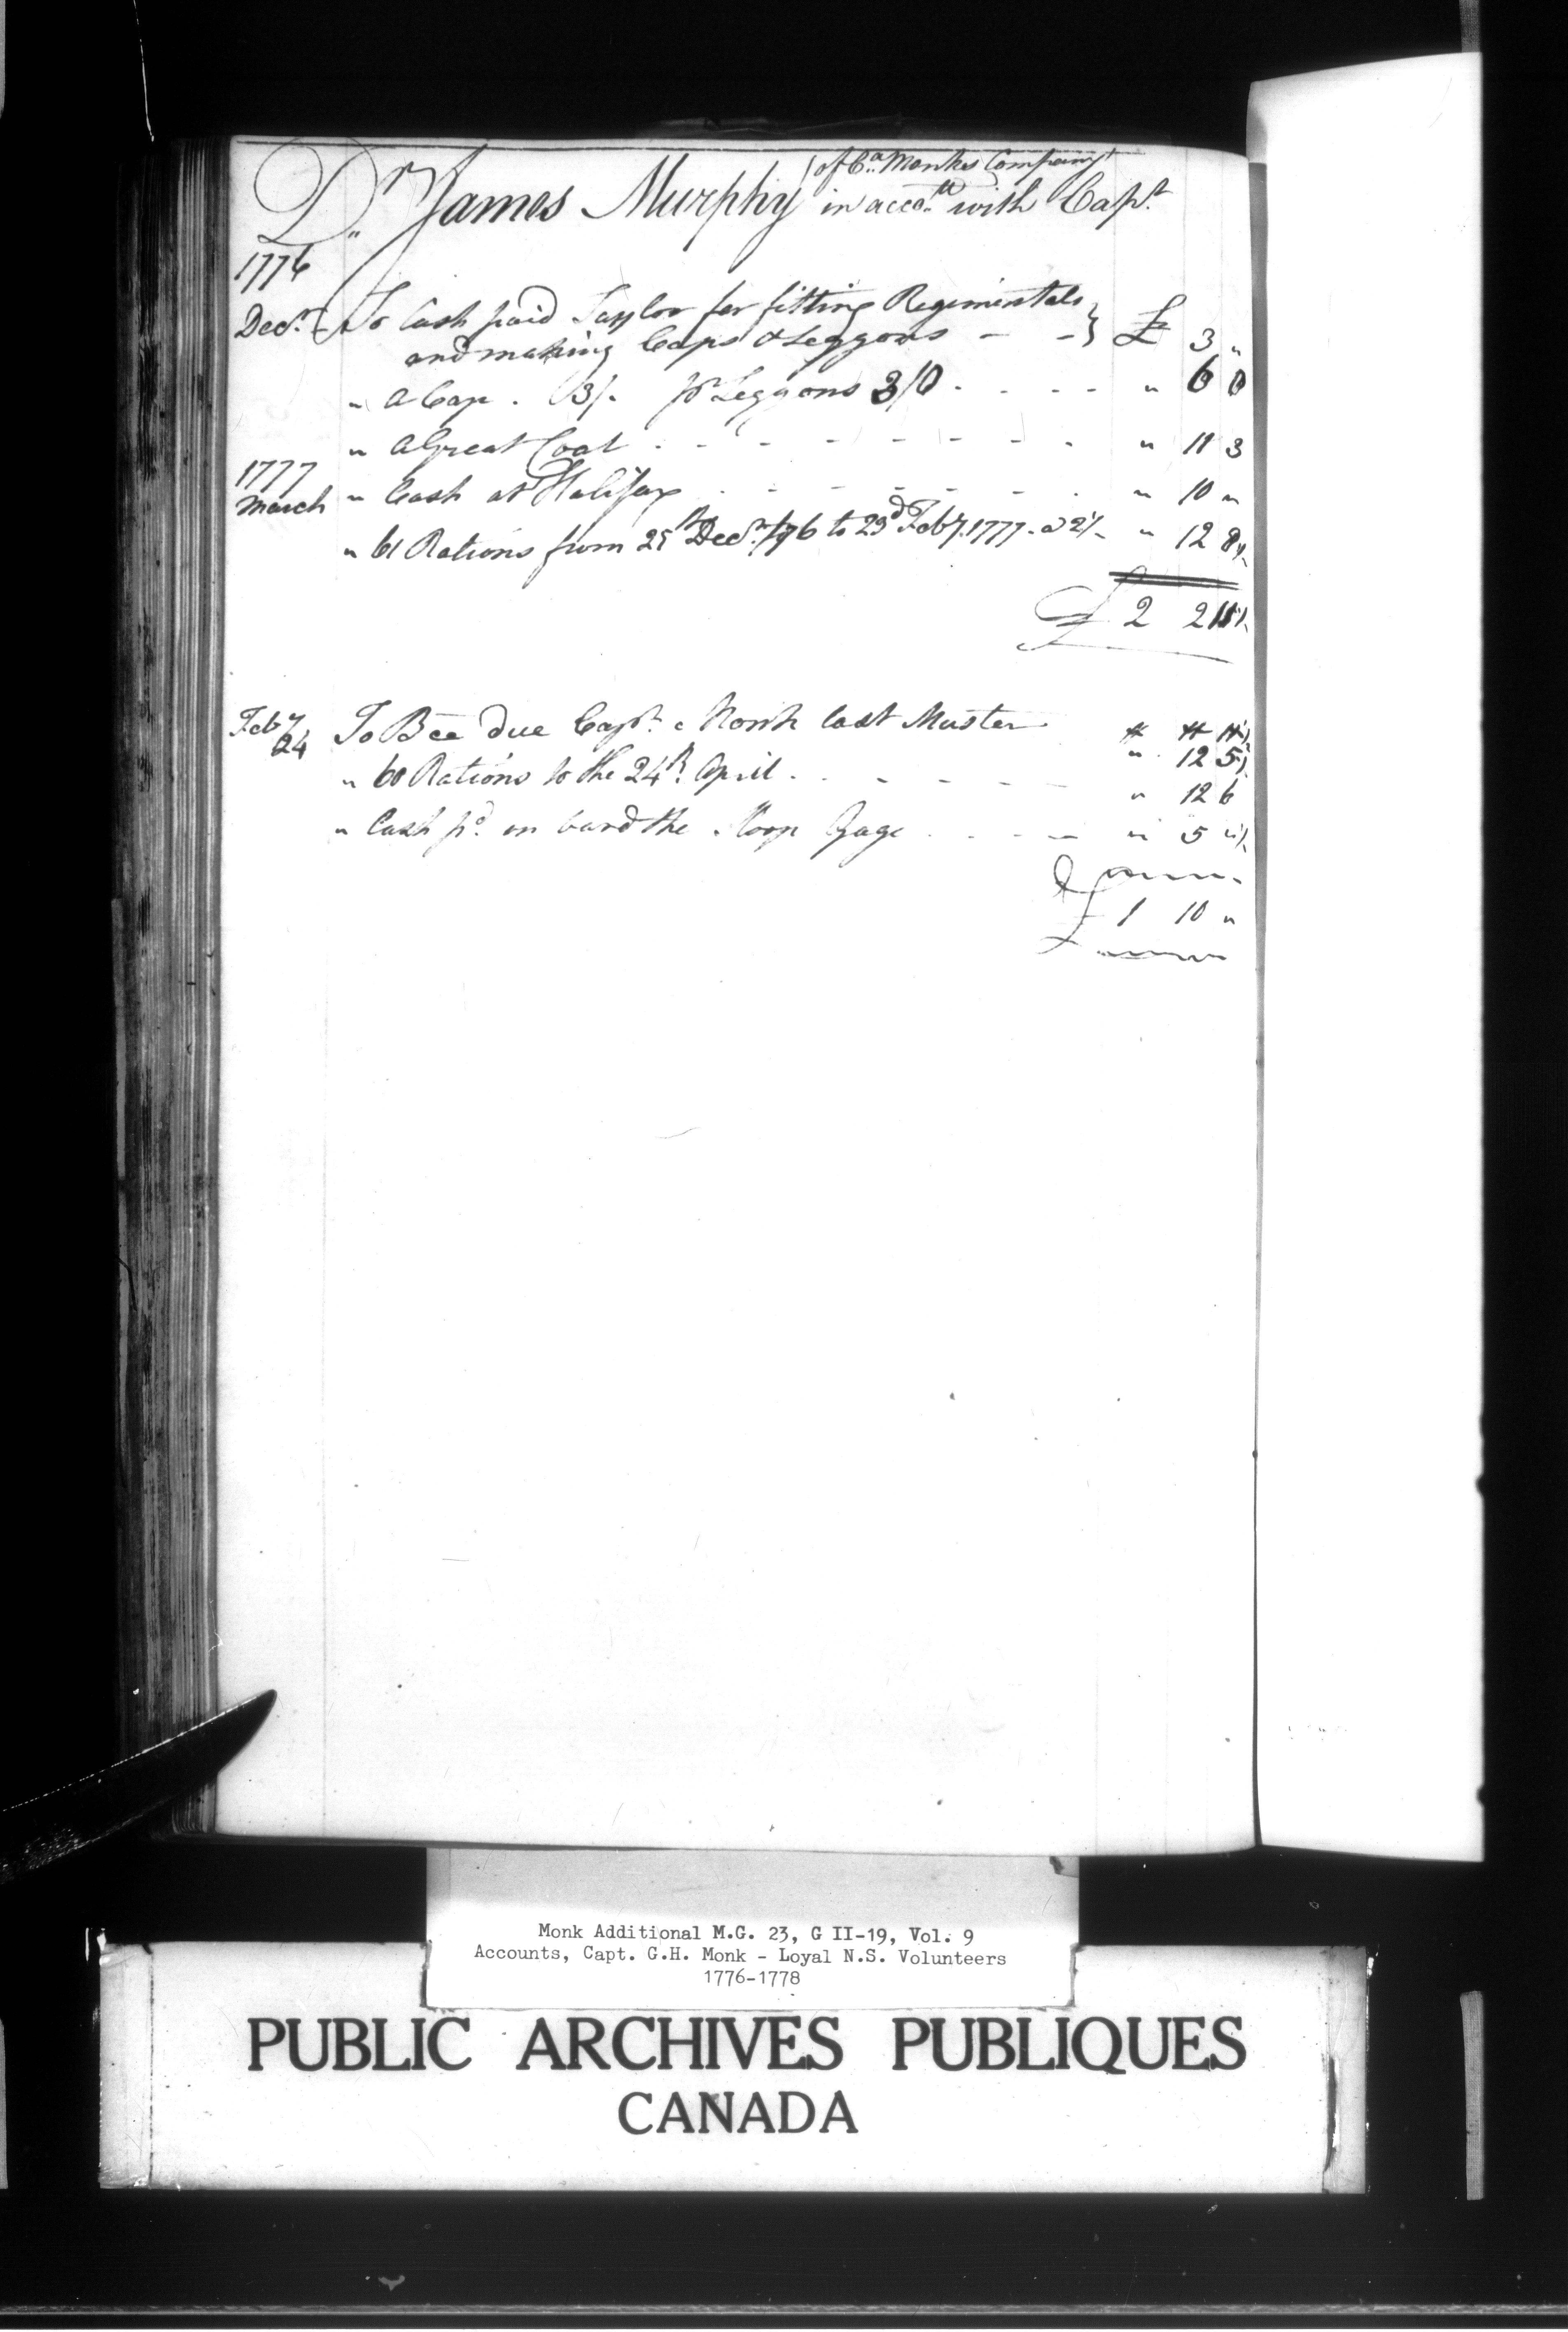 Dr James Murphy of Ca Monks Company
in acco.tt with Cap.t
1776
Dec.r To Cash paid Taylor for fitting Regimentals
and making Caps & Leggons - - } £ 3 "
" A Cap . 3/- pr Leggons 3/0 . - - - " 6 0
" A Great Coat . - - - - - - - . " 11 3
1777
March " Cash at Halifax . - - - - - - . " 10 "
" 61 Rations from 25th Dec.r 1776 to 23d Feby. 1777 - a 2½ - " 12 8½
£ 2 2 11½
Feby 24 To Bce due Capt. Monk last Muster
" 12 5½
" 60 Rations to the 24th April . . - - - - " 12 6
" Cash pd. on board the Sloop Gage . - - - " 5 "½
£ 1 10 "
Monk Additional M.G. 23, G II-19, Vol. 9
Accounts, Capt. G.H. Monk - Loyal N.S. Volunteers
1776-1778
PUBLIC ARCHIVES PUBLIQUES
CANADA